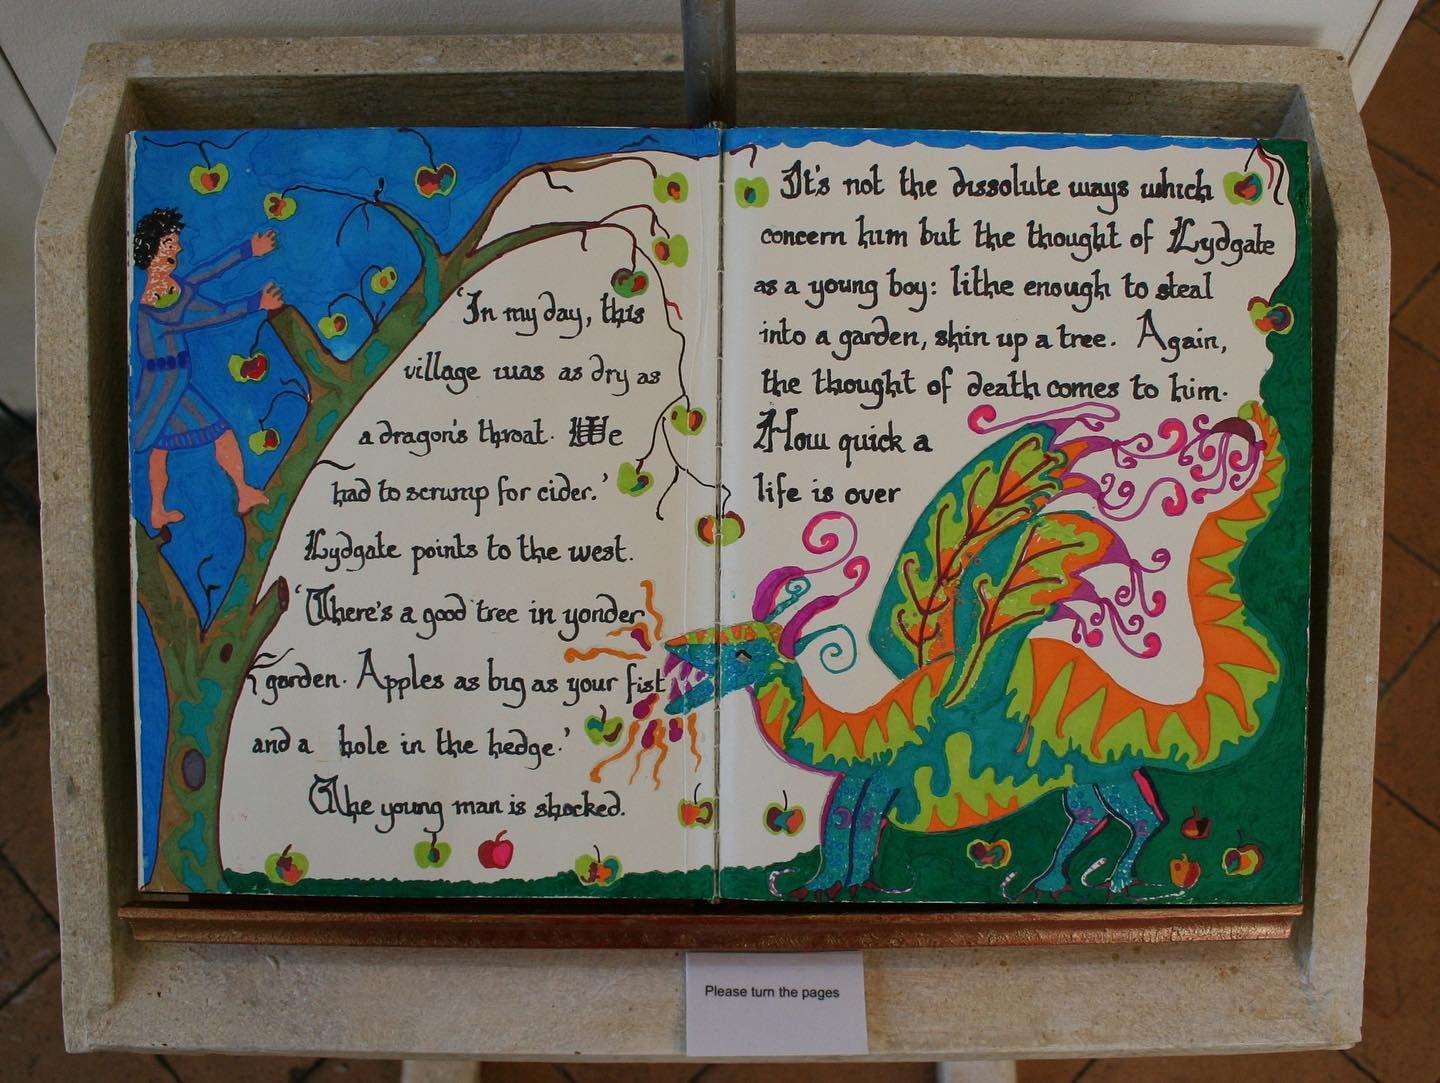 'In my day, this
village was as dry as
a dragon's throat. We
had to scrump for cider.'
Lydgate points to the west.
'There's a good tree in yonder
garden. Apples as big as your fist
and a hole in the hedge.'
The young man is shocked.
It's not the dissolute ways which
concern him but the thought of Lydgate
as a young boy: lithe enough to steal
into a garden, shin up a tree. Again,
the thought of death comes to him.
How quick a
life is over
Please turn the pages